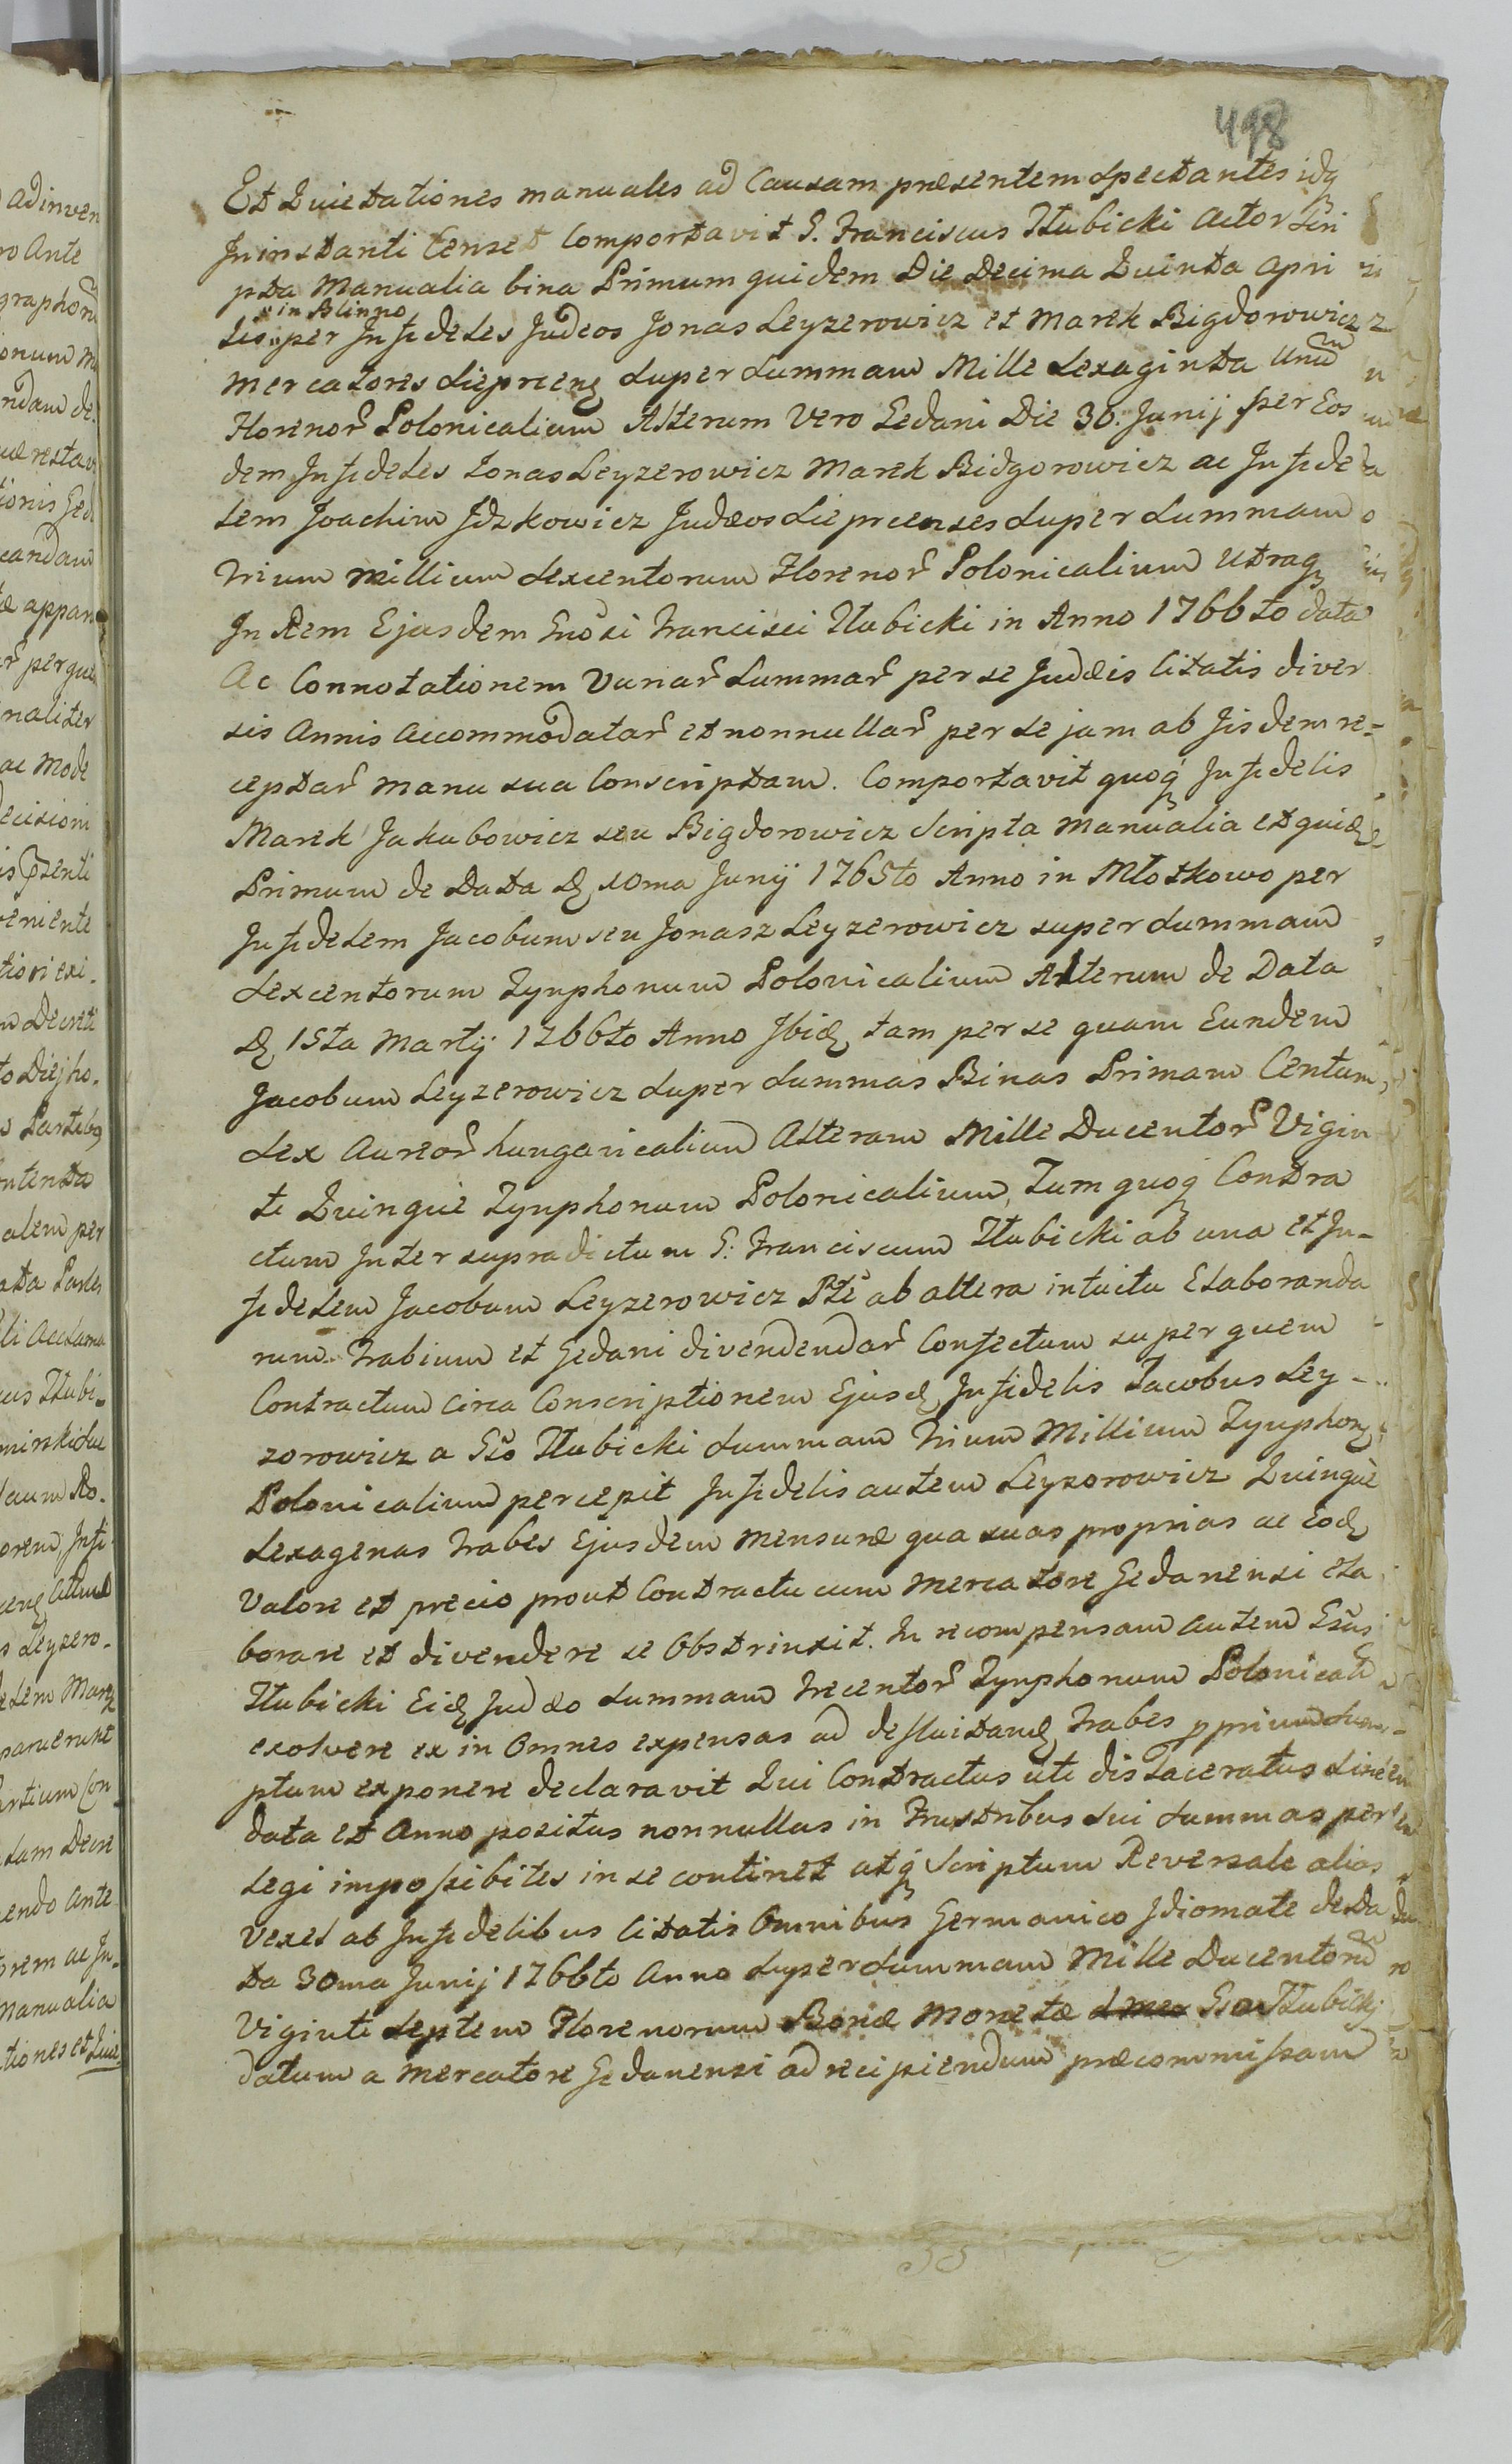 498
Et Quietationes manuales ad Causam præsentem spectantes idq
In instanti Censet Comportavit G. Franciscus Hubicki Actor Scri
pta Manualia bina Primum quidem Die Decima Quinta Apri
x in Blinno
lis x per Infideles Judeos Jonas Leyzerowicz et Marek Bigdorowicz
mercatores Sieprcenę super summam Mille Sexaginta Unũ
Florenor Polonicalium Alterum Vero Gedani Die 30. Junij per Eos
dem Infideles Jonas Leyzerowicz Marek Bidgorowicz ac Infide
lem Joachim Jdzkowicz Judæos Sieprcenses super summam
Trium Millium Sexcentorum Florenor Polonicalium Utraq
In Rem Ejusdem Gnosi Francisci Hubicki in Anno 1766to data
Ac Connotationem Variar Summar per se Judæis Citatis diver
sis Annis Accommodatar et nonnullar per se jam ab Jisdem re=
ceptar manu sua Conscriptam. Comportavit quoq Infidelis
Marek Jakubowicz seu Bigdorowicz Scripta Manualia et quidę
Primum de Data dę 10ma Junij 1765to Anno in Młotkowo per
Infidelem Jacobum seu Jonasz Leyzerowicz super summam
Sexcentorum Tynphonum Polonicalium Alterum de Data
dę 15ta Martij 1766to Anno Jbidę tam per se quam Eundem
Jacobum Leyzerowicz super summas Binas Primam Centum
Sex Aureor hungaricalium Alteram Mille Ducentor Vigin
ti Quinque Tynphonum Polonicalium, Tum quoq Contra
ctum Inter supradictum G: Franciscum Hubicki ab una et In-
fidelem Jacobum Leyzerowicz Pte ab altera intuitu Elaboranda
rum Trabium et Gedani divendendar Confectum super quem
Contractum Circa Conscriptionem Ejusdę Infidelis Jacobus Ley-
zorowicz a Gso Hubicki summam Trium Millium Tynphonę
Polonicalium percepit Infidelis autem Leyzorowicz Quinque
Sexagenas Trabes Ejusdem Mensuræ qua suas proprias ac Eodę
Valore et precio prout Contractu cum Mercatore Gedanensi ela
borare et divendere se Obstrinxit. In recompensam autem Gsus
Hubicki Eidę Judæo summam Trecentor Tynphonum Polonicali
exolvere ex in Omnes expensas ad defluitandę Trabes pprium sum-
ptum exponere declaravit Qui Contractus uti dislaceratus Sine
data et Anno positus nonnullas in Frustribus sui summas per
legi impossibiles in se continet atq Scriptum Reversale alias
Vexel ab Infidelibus Citatis Omnibus Germanico Jdiomate de Da
ta 30ma Junij 1766to Anno super summam Mille Ducentorũ
Viginti Septem Florenorum Bonæ Monetæ Gso Hubicki
datum a Mercatore Gedanensi ad recipiendum præcommissam